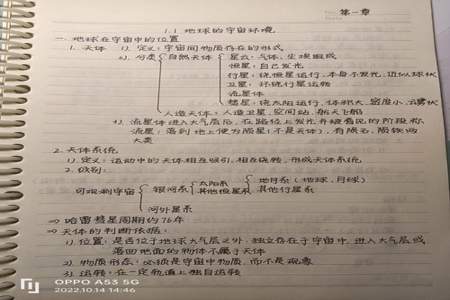 第一章
1.1 地球的宇宙环境
一. 地球在宇宙中的位置
1. 天体 1). 定义: 宇宙间物质存在的形式
2). 分类 自然天体 星云: 气体、尘埃组成
恒星: 自己发光
行星: 绕恒星运行, 本身不发光, 近似球状
卫星: 环绕行星运转
流星体
彗星: 绕太阳运行, 体积大, 密度小, 云雾状
人造天体: 人造卫星, 空间站, 航天飞船
流星体进入大气层后, 在路径上发光并被看见的阶段称
流星; 落到地上便为陨星(不是天体), 有陨石、陨铁两
大类
2. 天体系统
1). 定义: 运动中的天体相互吸引, 相互绕转, 形成天体系统
2. 级别:
可观测宇宙 银河系 太阳系 地月系 (地球, 月球)
其他恒星系 其他行星系
河外星系
⇒ 哈雷彗星周期约76年
⇒ 天体的判断依据:
1) 位置: 是否位于地球大气层之外, 独立存在于宇宙中, 进入大气层或
落回地面的物体不属于天体
2). 物质形态: 必须是宇宙中物质, 而不是现象
3). 运转: 在一定轨道上独自运转
OPPO A53 5G
2022.10.14 14:46